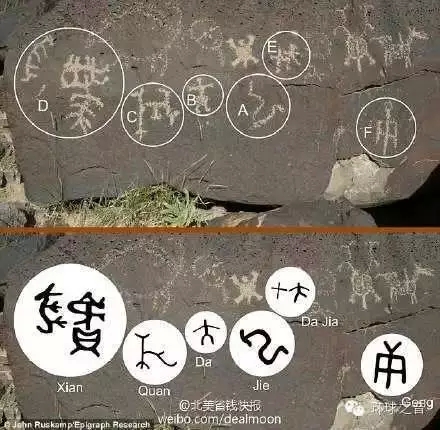 E
D
B
C
A
F
Da Jia
Da
Xian
Quan
Jie
Geng
@北美省钱快报
© John Ruskamp/Epigraph Research
weibo.com/dealmoon
环球之音